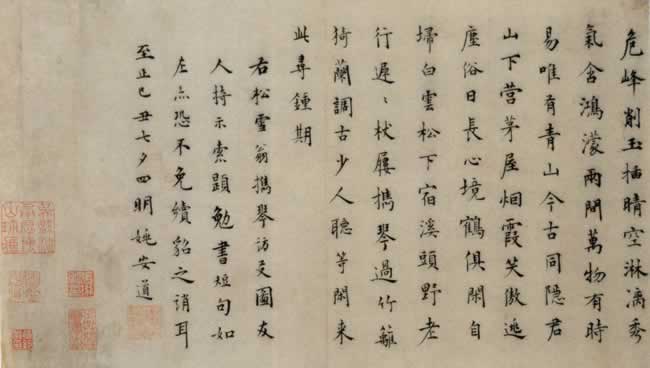 危峰削玉插晴空淋漓秀
氣含鴻濛兩間萬物有時
易唯有青山今古同隱君
山下營茅屋烟霞笑傲逃
塵俗日長心境鶴俱閑自
掃白雲松下宿溪頭野老
行遲〻杖屨携琴過竹籬
猗蘭調古少人聽等閑来
此尋鍾期
右松雪翁携琴訪友圖友
人持示索題勉書短句如
左亦恐不免續貂之誚耳
至正己丑七夕四明姚安道